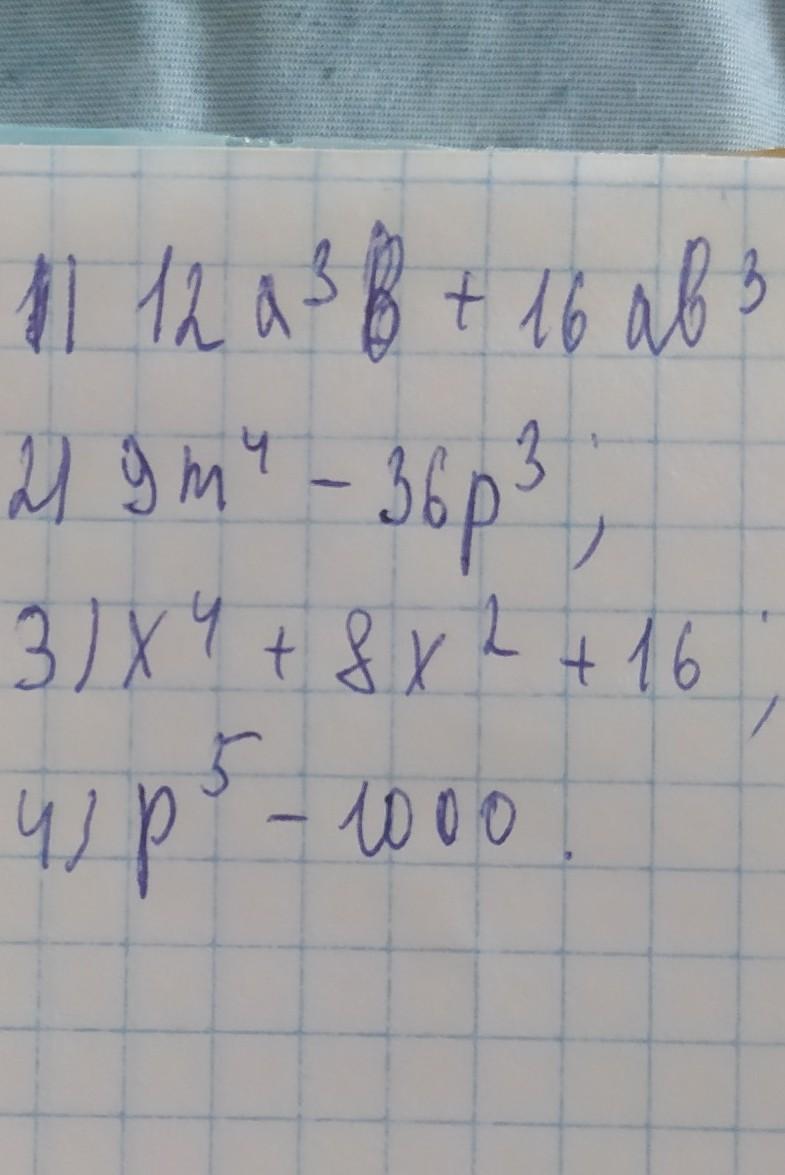 1) 12a³b + 16ab³
2) 9m⁴ - 36p³;
3) x⁴ + 8x² + 16;
4) p⁵ - 1000.